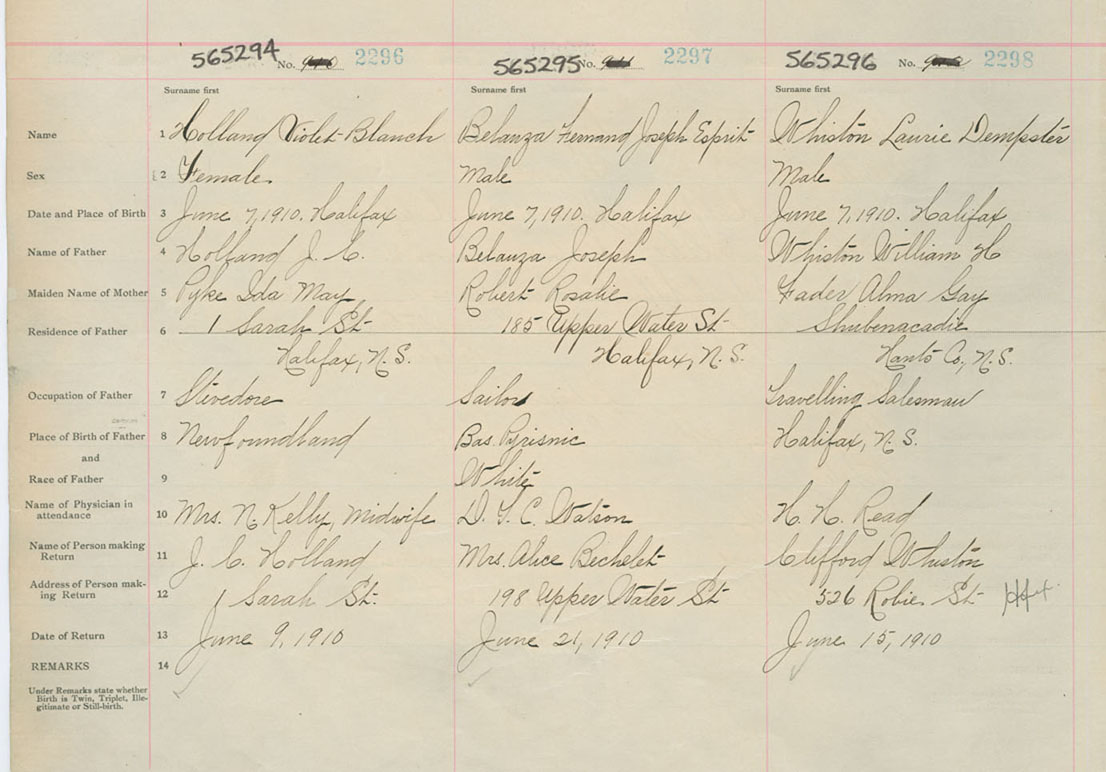 565294 No. 2296 565295 No. 2297 565296 No. 2298
Surname first Surname first Surname first
Name 1 Holland Violet Blanch Belanza Fernand Joseph Esprit Whiston Laurie Dempster
Sex 2 Female Male Male
Date and Place of Birth 3 June 7, 1910. Halifax June 7, 1910. Halifax June 7, 1910. Halifax
Name of Father 4 Holland J. C. Belanza Joseph Whiston William H
Maiden Name of Mother 5 Pyke Ida May Robert Rosalie Fader Alma Gay
Residence of Father 6 1 Sarah St 185 Upper Water St Shubenacadie
Halifax, N.S. Halifax, N.S. Hants Co, N.S.
Occupation of Father 7 Stevedore Sailor Travelling Salesman
Place of Birth of Father 8 Newfoundland Bas. Halifax, N.S.
and
Race of Father 9 White
Name of Physician in attendance 10 Mrs. N. Kelly, Midwife D. T. C. Watson H. H. Read
Name of Person making Return 11 J. C. Holland Mrs. Alice Bechelet Clifford Whiston
Address of Person making Return 12 1 Sarah St. 198 Upper Water St 526 Robie St Hfx
Date of Return 13 June 9, 1910 June 21, 1910 June 15, 1910
REMARKS 14
Under Remarks state whether
Birth is Twin, Triplet, Ille-
gitimate or Still-birth.